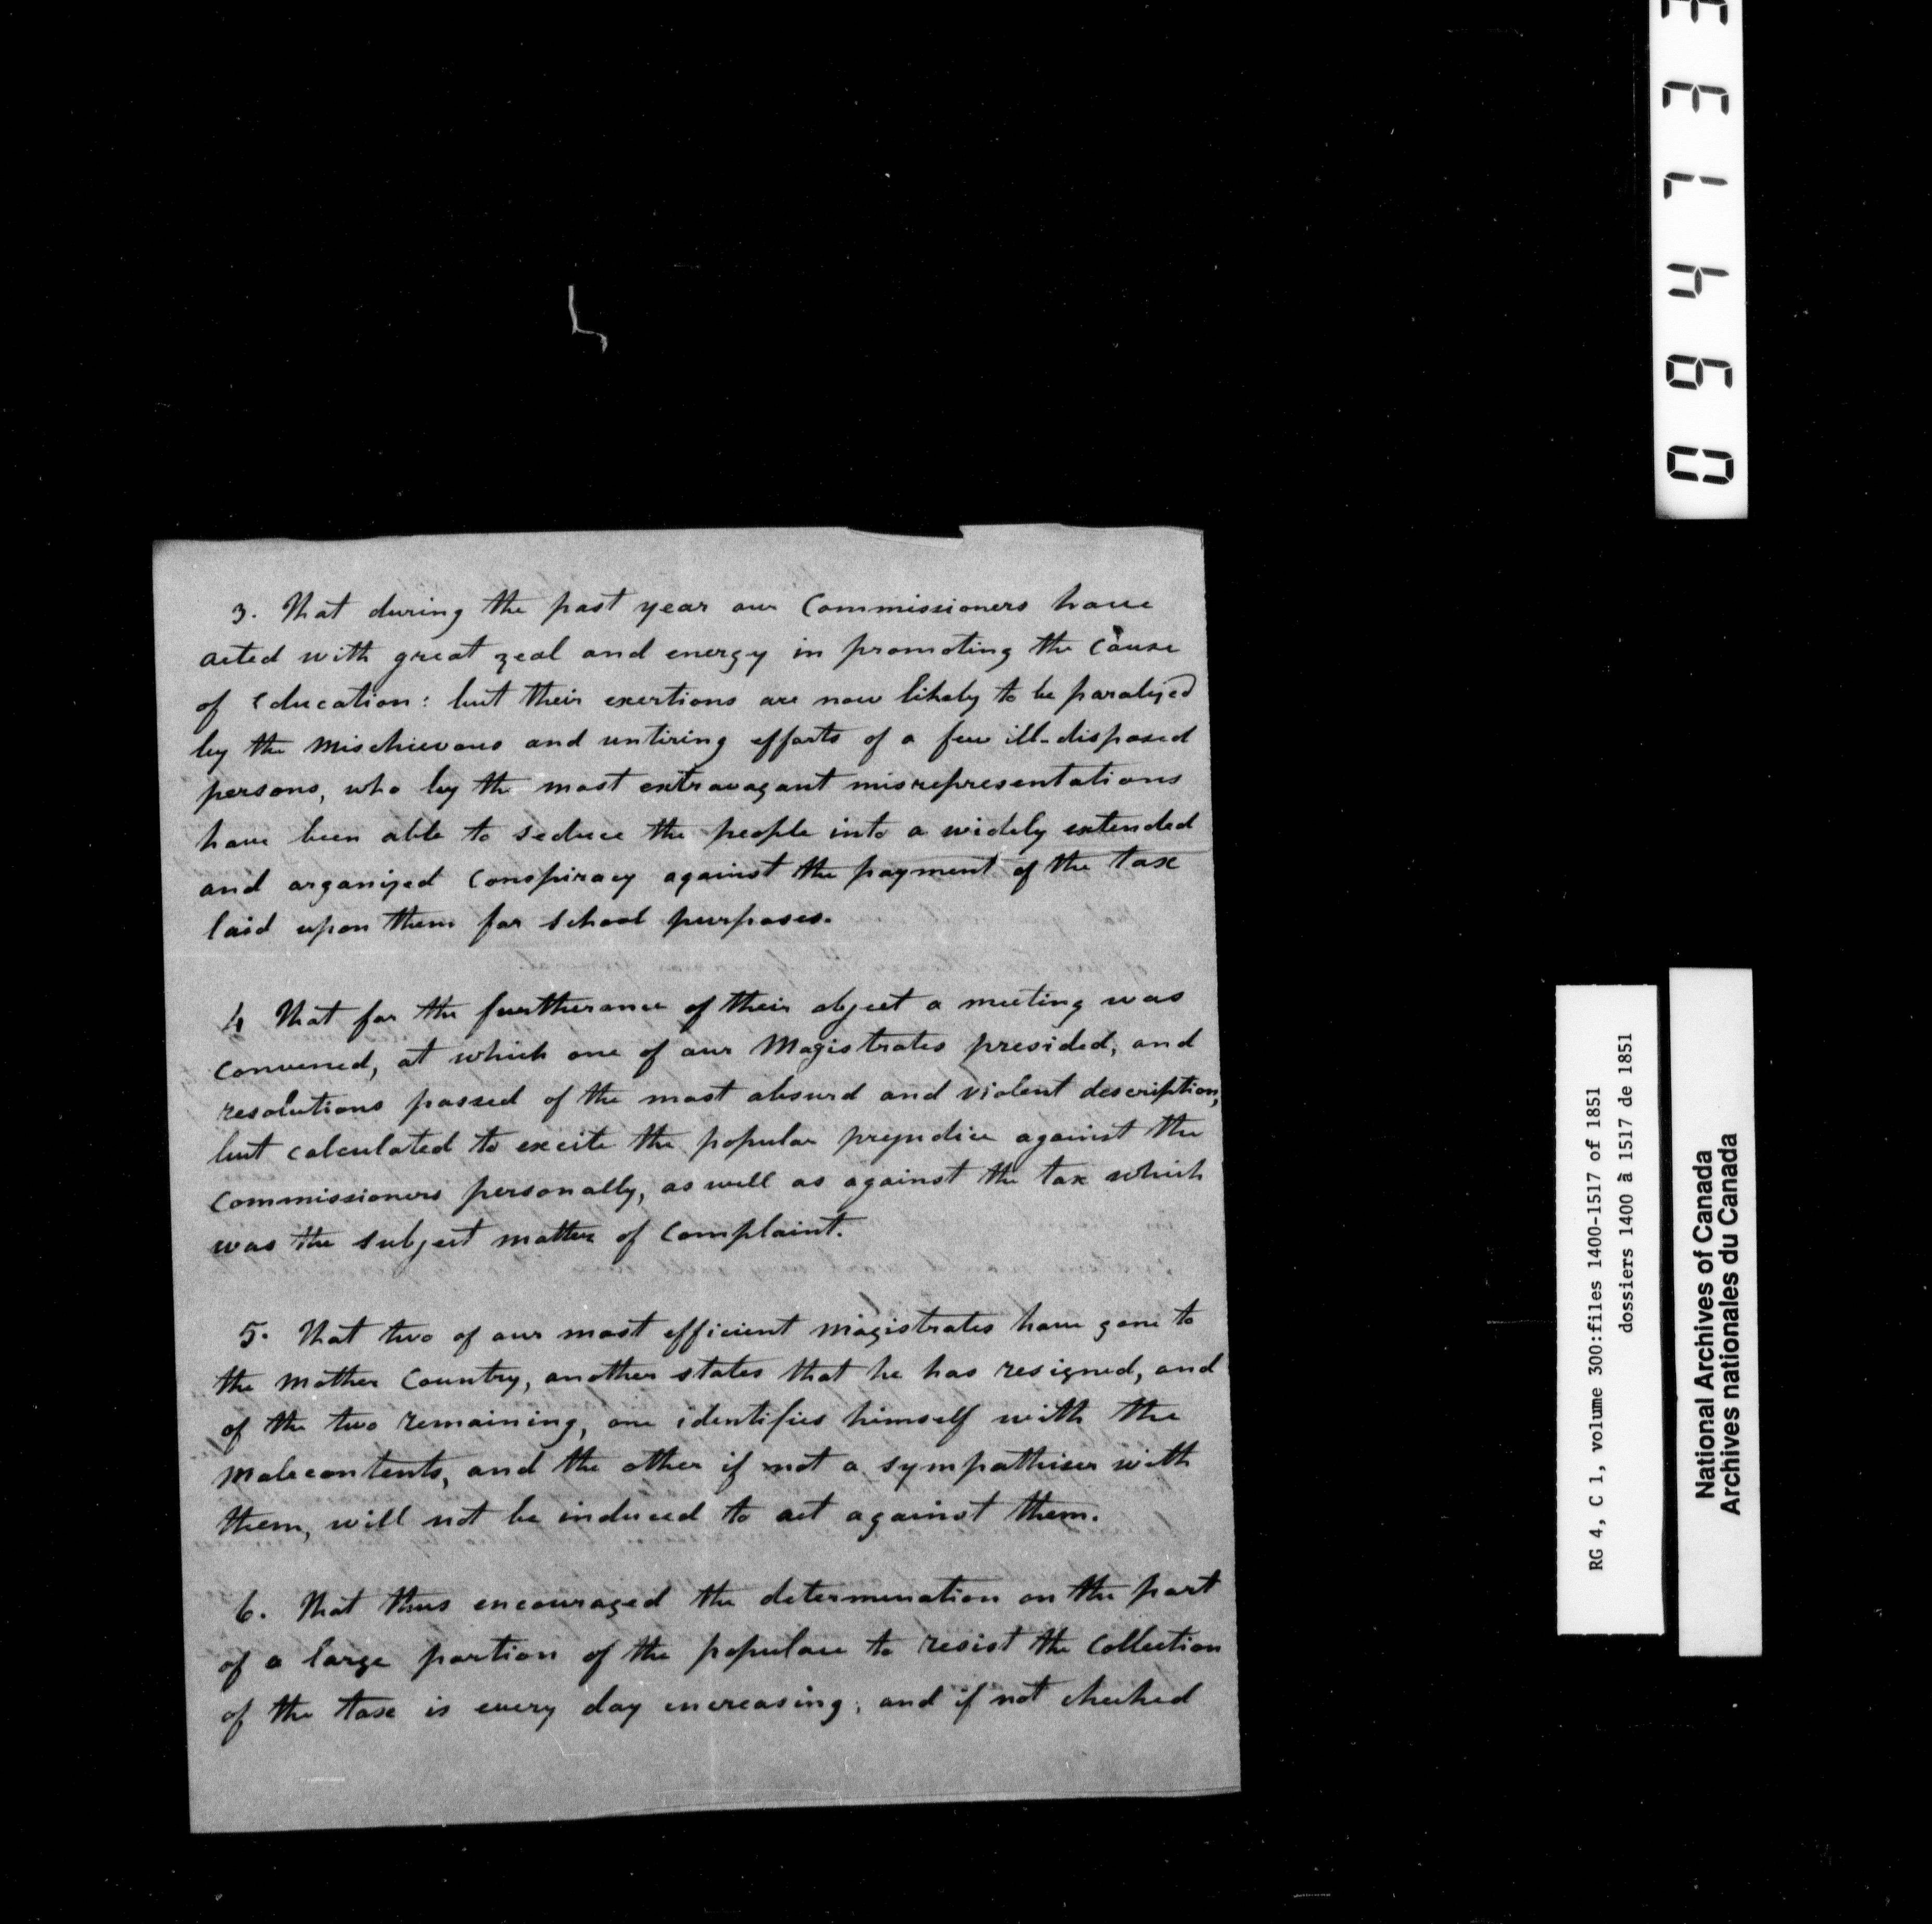 3. That during the past year our Commissioners have
acted with great zeal and energy in promoting the Cause
of Education: but their exertions are now likely to be paralyzed
by the mischievous and untiring efforts of a few ill-disposed
persons, who by the most extravagant misrepresentations
have been able to seduce the people into a widely extended
and organized Conspiracy against the payment of the tax
laid upon them for school purposes.
4 That for the furtherance of their object a meeting was
convened, at which one of our Magistrates presided, and
resolutions passed of the most absurd and violent description,
but calculated to excite the popular prejudice against the
Commissioners personally, as well as against the tax which
was the subject matter of Complaint.
5. That two of our most efficient magistrates have gone to
the Mother Country, another states that he has resigned, and
of the two remaining, one identifies himself with the
malecontents, and the other if not a sympathiser with
them, will not be induced to act against them.
6. That thus encouraged the determination on the part
of a large portion of the populace to resist the Collection
of the tax is every day increasing; and if not checked
RG 4, C 1, volume 300:files 1400-1517 of 1851
dossiers 1400 à 1517 de 1851
National Archives of Canada
Archives nationales du Canada